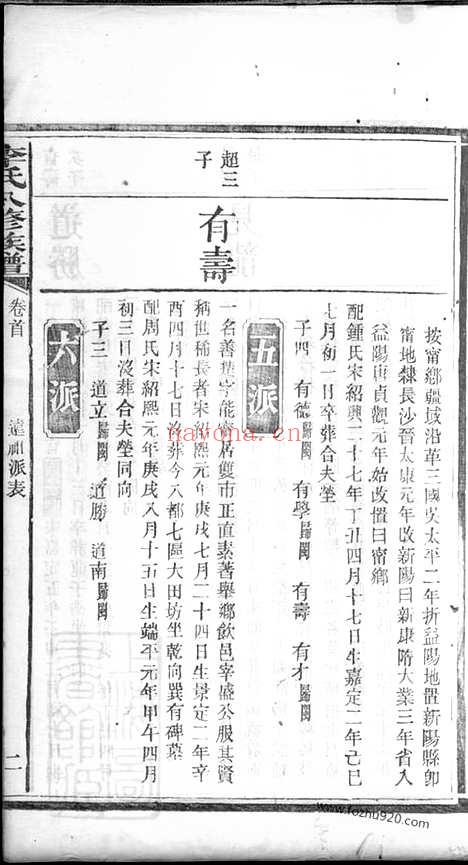 按甯鄉疆域沿革三國吳太平二年析益陽地置新陽縣卽
甯地隸長沙晉太康元年改新陽曰新康隋大業三年省入
益陽唐貞觀元年始改置曰甯鄉
配鍾氏宋紹興二十七年丁丑四月十七日生嘉定二年己巳
七月初一日卒葬合夫塋
子四 有德歸閩 有學歸閩 有壽 有才歸閩
五派
超三子
有壽
一名善 字能 居雙市正直素著舉鄉飲邑宰盛公服其賢
稱世稀長者宋紹熙元年庚戌七月二十四日生景定二年辛
酉四月十七日沒葬今八都七區大田坊坐乾向巽有碑墓
配周氏宋紹熙元年庚戌八月十五日生端平元年甲午四月
初三日沒葬合夫塋同向
子三 道立歸閩 道勝 道南歸閩
六派
李氏八修族譜
卷首
遠祖派表
二
navona.cn
www.fozhu920.com